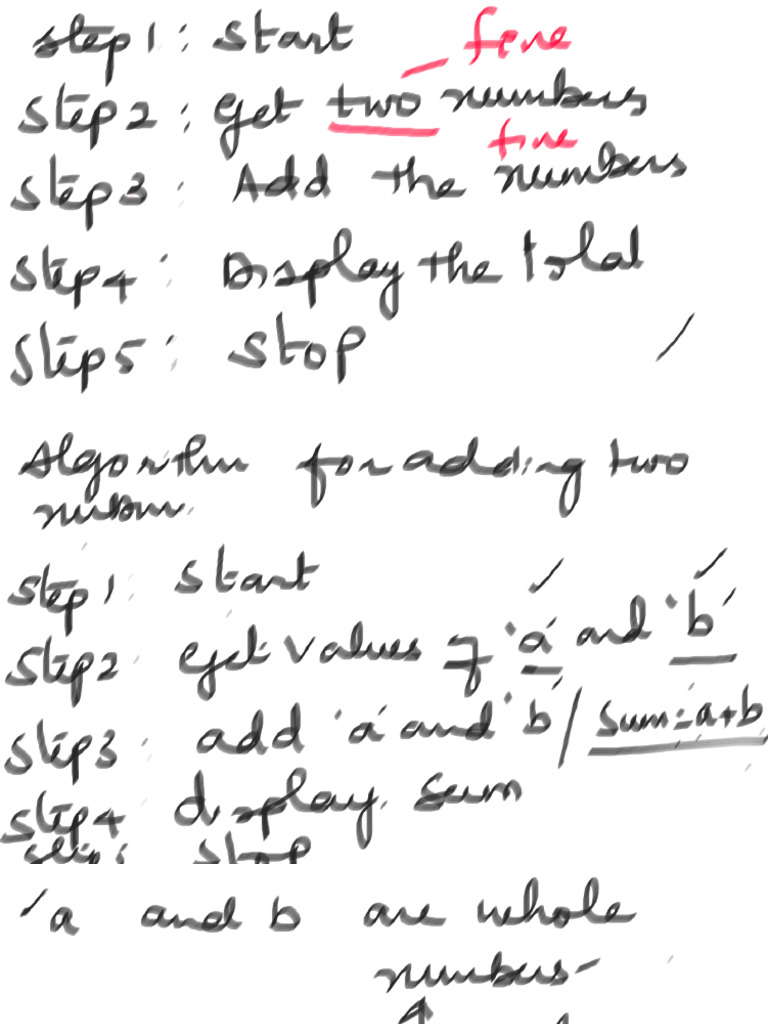 Step 1 : Start
five
Step 2 : Get two numbers
five
Step 3 : Add the numbers
Step 4 : Display the total
Step 5 : Stop
Algorithm for adding two
Step 1 : Start
Step 2 : Get values of 'a' and 'b'
Step 3 : add 'a' and 'b' / sum = a + b
Step 4 display sum
stop
a and b are whole
numbers-